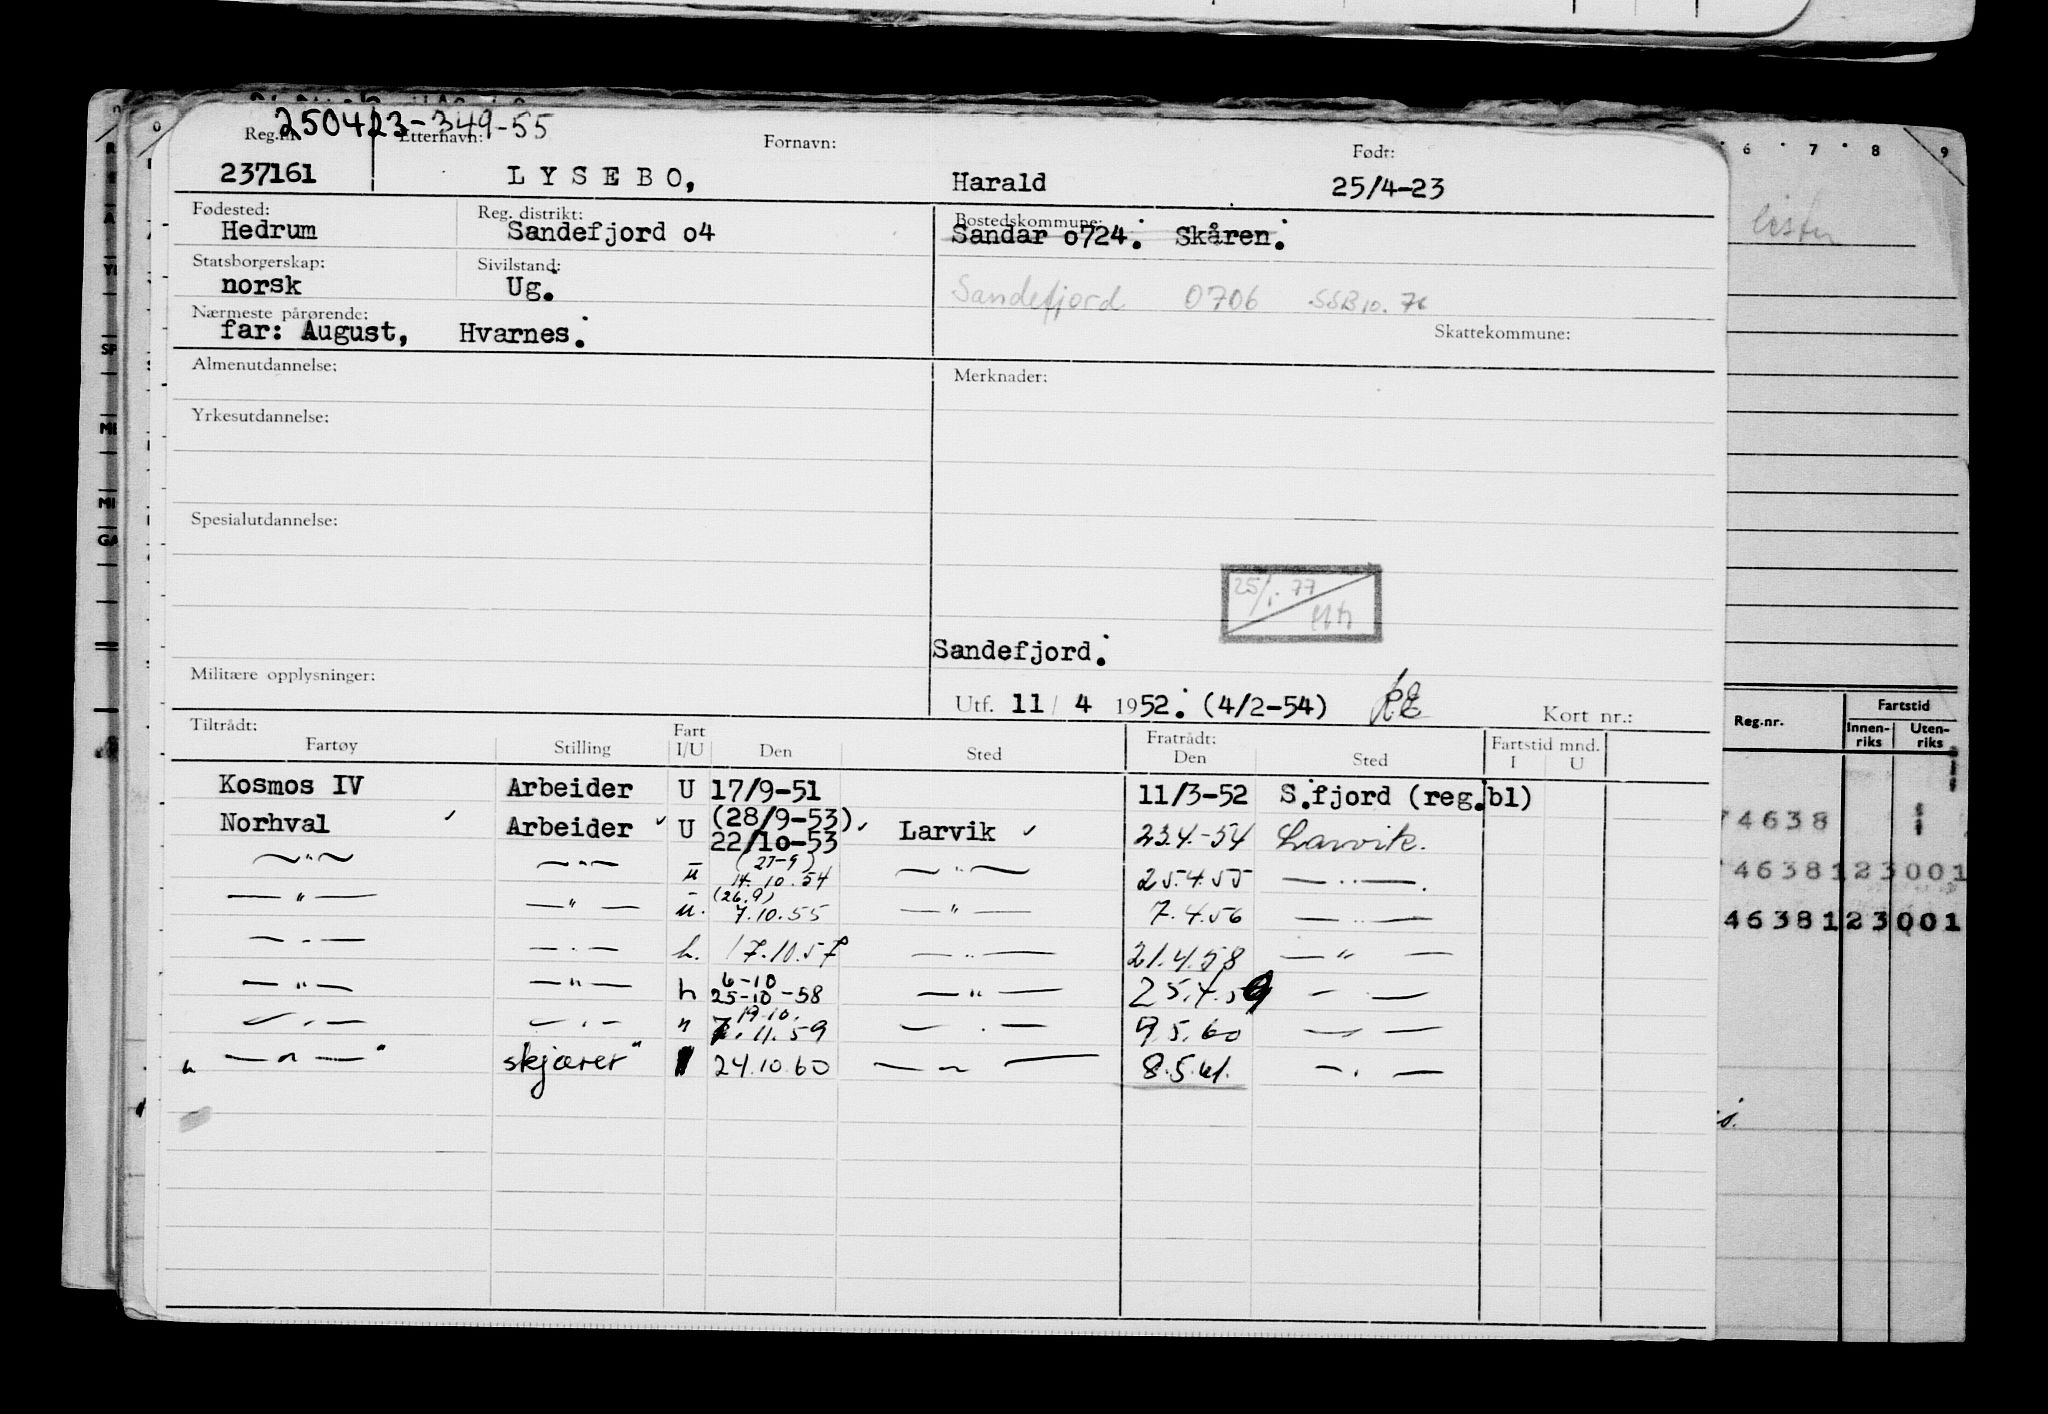 250423-349-55
Reg.nr. Etternavn: Fornavn: Født:
237161 LYSEBO, Harald 25/4-23
Fødested: Reg. distrikt: Bostedskommune:
Hedrum Sandefjord o4 Sandar o724. Skåren.
Statsborgerskap: Sivilstand:
norsk Ug. Sandefjord 0706 SSB 10. 76
Nærmeste pårørende: Skattekommune:
far: August, Hvarnes.
Almenutdannelse: Merknader:
Yrkesutdannelse:
Spesialutdannelse:
25/1. 77
Sandefjord.
Militære opplysninger:
Utf. 11/ 4 1952. (4/2-54) Kort nr.:
Tiltrådt: Fratrådt:
Fartøy Stilling Fart I/U Den Sted Den Sted Fartstid mnd. I U
Kosmos IV Arbeider U 17/9-51 11/3-52 S.fjord (reg.bl)
Norhval ✓ Arbeider ✓ U (28/9-53) 22/10-53 ✓ Larvik ✓ 23.4.-54 Larvik.
—"— —"— u (27-9) 14.10.54 —"— 25.4.55 —"—.
—"— —"— u. (26.9) 7.10.55 —"— 7.4.56 —"—
—"— —"— u. 17.10.57 —"— 21.4.58 —"—
—"— —"— u 6-10 25-10-58 —"— 25.4.59 —"—
—"— —"— u 19.10. 7.11.59 —"— 9.5.60 —"—
u —"— skjærer 24.10.60 —"— 8.5.61. —"—
6 7 8 9
Reg.nr. Fartstid
Innen-riks Uten-riks
74638
74638123001
4638123001